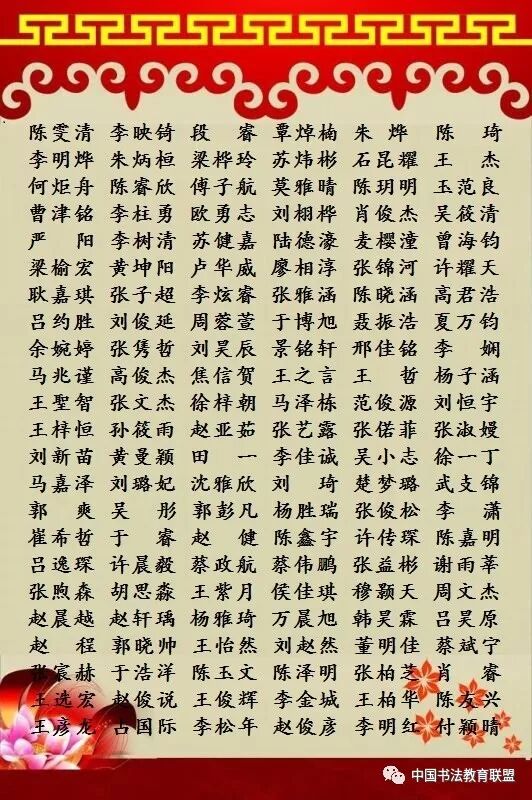 陈雯清 李映锜 段睿 覃焯楠 朱烨 陈琦
李明烨 朱炳桓 梁桦玲 苏炜彬 石昆耀 王杰
何炬舟 陈睿欣 傅子航 莫雅晴 陈玥明 玉范良
曹津铭 李柱勇 欧勇志 刘栩桦 肖俊杰 吴筱清
严阳 李树清 苏健嘉 陆德濠 麦樱潼 曾海钧
梁榆宏 黄坤阳 卢华威 廖相淳 张锦河 许耀天
耿嘉琪 张子超 李炫睿 张雅涵 陈晓涵 高君浩
吕约胜 刘俊延 周蓉萱 于博旭 聂振浩 夏万钧
余婉婷 张隽哲 刘昊辰 景铭轩 邢佳铭 李娴
马兆谨 高俊杰 焦信贺 王之言 王哲 杨子涵
王聖智 张文杰 徐梓朝 马泽栋 范俊源 刘恒宇
王梓恒 孙筱雨 赵亚茹 张艺露 张偌菲 张淑嫚
刘新苗 黄曼颖 田一 李佳诚 吴小志 徐一丁
马嘉泽 刘璐妃 沈雅欣 刘琦 楚梦璐 武支锦
郭爽 吴彤 郭彭凡 杨胜瑞 张俊松 李潇
崔希哲 于睿 赵健 陈鑫宇 许传琛 陈嘉明
吕逸琛 许晨毅 蔡政航 蔡伟鹏 张益彬 谢雨莘
张煦森 胡思淼 王紫月 侯佳琪 穆颢天 周文杰
赵晨越 赵轩瑀 杨雅琦 万晨旭 韩昊霖 吕昊原
赵程 郭晓帅 王怡然 刘赵然 董明佳 蔡斌宁
张宸赫 于浩洋 陈玉文 陈泽明 张柏芝 肖睿
王选宏 赵俊说 王俊辉 李金城 王柏华 陈友兴
王彦龙 古国际 李松年 赵俊彦 李明红 付颖晴
中国书法教育联盟